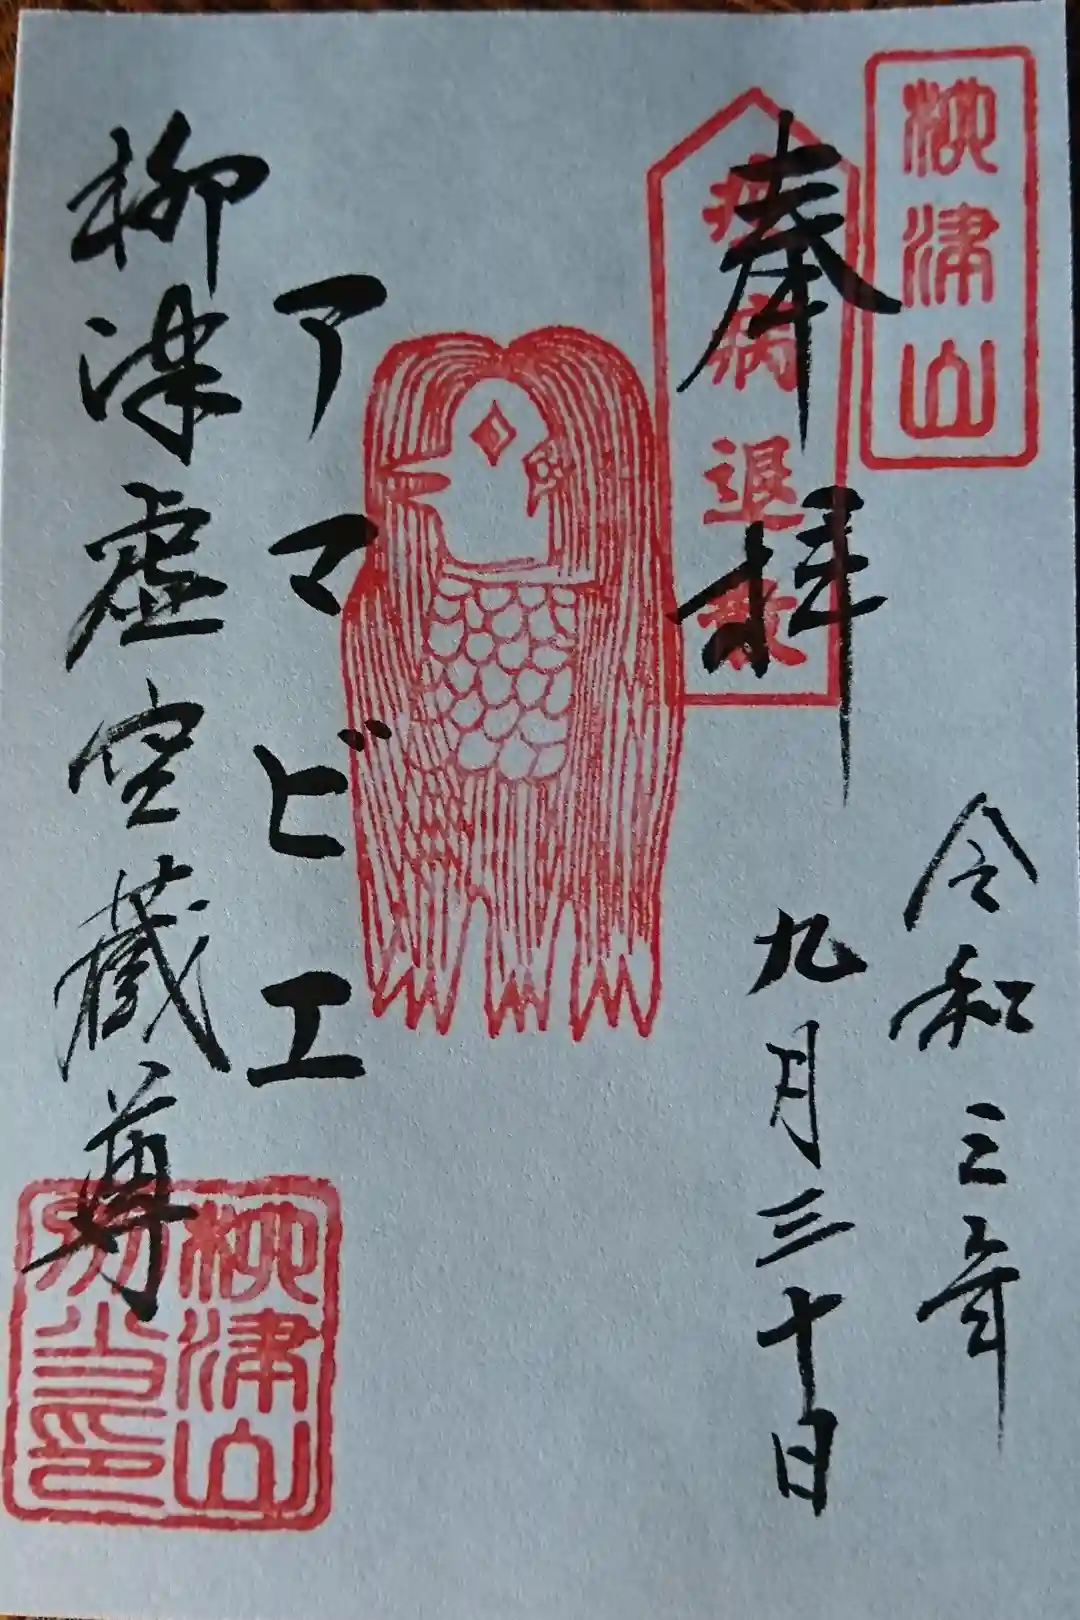 柳津山
疫病退散
奉拝
令和三年
九月三十日
アマビエ
柳津虚空蔵尊
柳津山
別当印